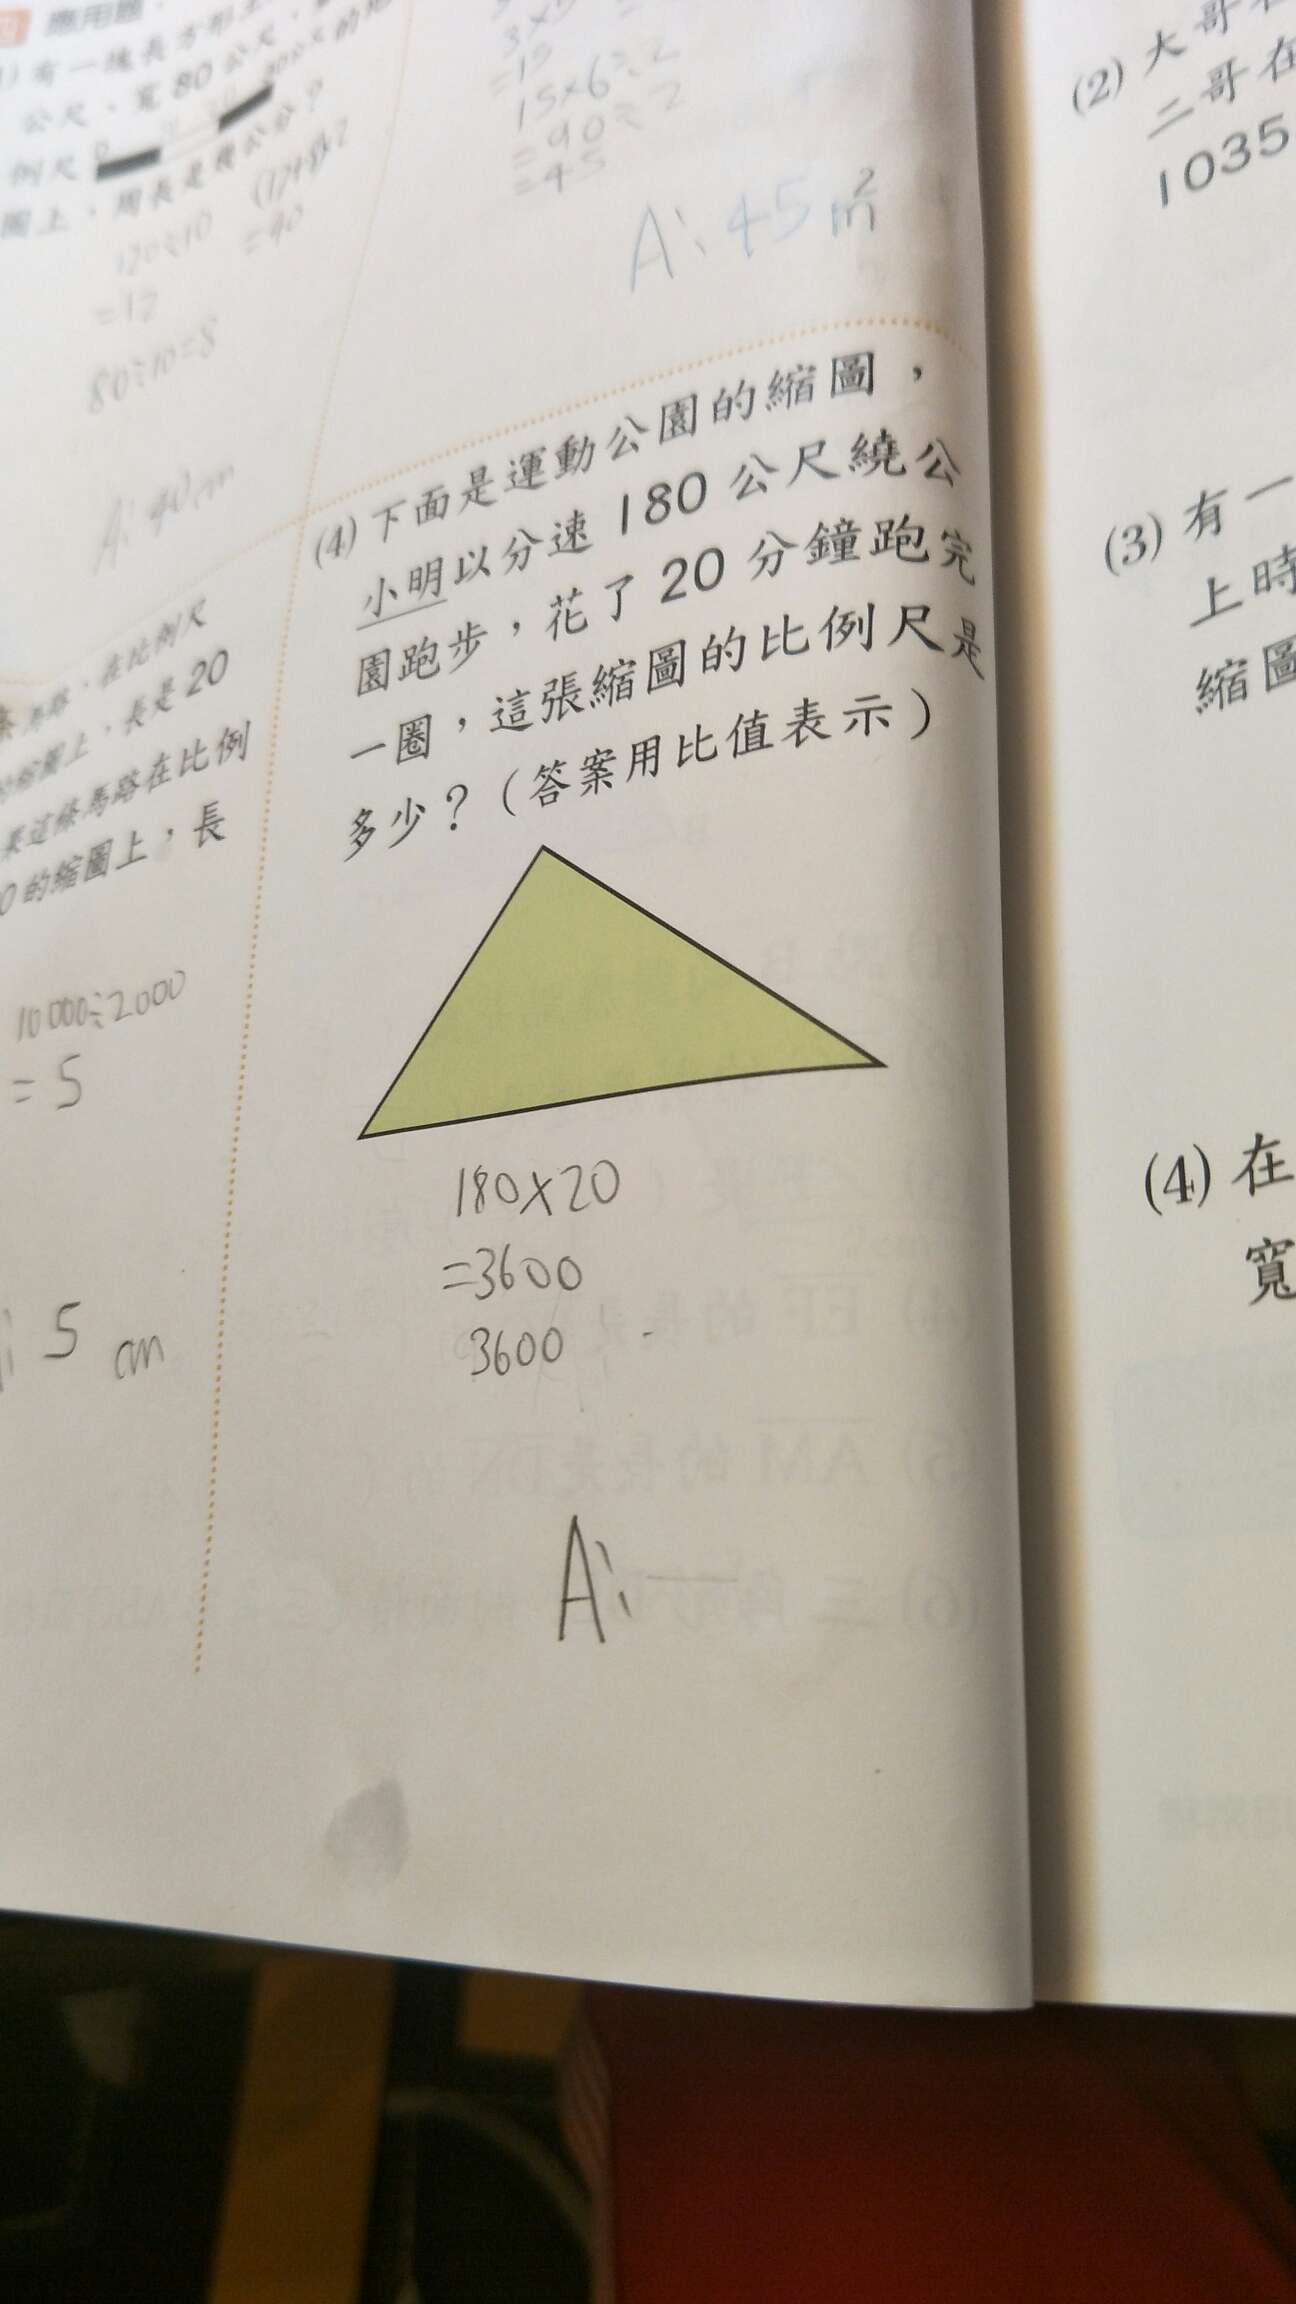 四 應用題
有一塊長方形土
公尺、寬80公尺,
例尺 0 20公尺的地
圖上,周長是幾公分?
120÷10
=12
80÷10=8
=40
A: 40cm
馬路,在比例尺
的縮圖上,長是20
果這條馬路在比例
0的縮圖上,長
10000÷2000
=5
5 cm
=15
15×6÷2
=90÷2
=45
A: 45m²
(4) 下面是運動公園的縮圖,
小明以分速180公尺繞公
園跑步,花了20分鐘跑完
一圈,這張縮圖的比例尺是
多少?(答案用比值表示)
180×20
=3600
3600
A:
(2) 大哥
二哥在
1035
(3) 有一
上時
縮圖
(4) 在
寬